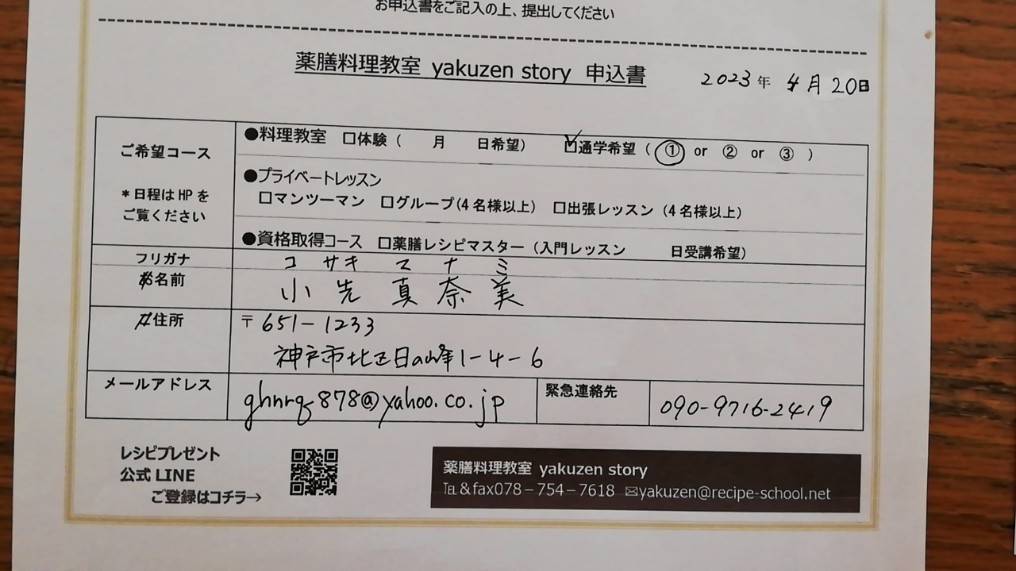 お申込書をご記入の上、提出してください
薬膳料理教室 yakuzen story 申込書
2023年 4月20日
ご希望コース
*日程はHPを
ご覧ください
●料理教室 □体験( 月 日希望) ☑通学希望( ① or ② or ③ )
●プライベートレッスン
□マンツーマン □グループ(4名様以上) □出張レッスン(4名様以上)
●資格取得コース □薬膳レシピマスター(入門レッスン 日受講希望)
フリガナ コサキ マナミ
お名前 小先 真奈美
ご住所 〒651-1233
神戸市北区日の峰1-4-6
メールアドレス ghnrq878@yahoo.co.jp 緊急連絡先 090-9716-2419
レシピプレゼント
公式LINE
ご登録はコチラ→
薬膳料理教室 yakuzen story
℡&fax078-754-7618 ✉yakuzen@recipe-school.net